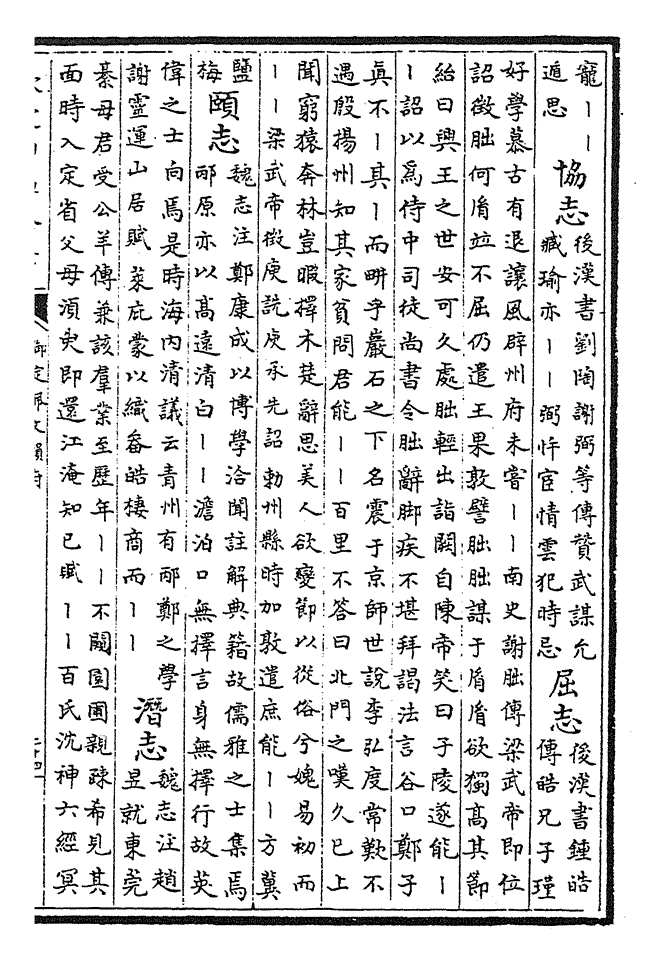 寵丨丨
遁思
協志
後漢書劉陶謝弼等傳贊武謀允
臧瑜亦丨丨弼忤宦情雲犯時忌
屈志
後漢書鍾皓
傳皓兄子瑾
好學慕古有退讓風辟州府未嘗丨丨南史謝朏傳梁武帝即位
詔徵朏何胤竝不屈仍遣王果敦譬朏朏謀于胤胤欲獨高其節
紿曰興王之世安可久處朏輕出詣闕自陳帝笑曰子陵遂能丨
丨詔以爲侍中司徒尚書令朏辭脚疾不堪拜謁法言谷口鄭子
眞不丨其丨而畊乎巖石之下名震于京師世說李弘度常歎不
遇殷揚州知其家貧問君能丨丨百里不答曰北門之嘆久已上
聞窮猿奔林豈暇擇木楚辭思美人欲變節以從俗兮媿易初而
丨丨梁武帝徵庾詵庾承先詔勅州縣時加敦遣庶能丨丨方冀
鹽
梅
頤志
魏志注鄭康成以博學洽聞註解典籍故儒雅之士集焉
邴原亦以高遠清白丨丨澹泊口無擇言身無擇行故英
偉之士向焉是時海內清議云青州有邴鄭之學
謝靈運山居賦萊庇蒙以織畚皓棲商而丨丨
潛志
魏志注趙
昱就東莞
綦毋君受公羊傳兼該羣業至歷年丨丨不闚園圃親疎希見其
面時入定省父母須臾即還江淹知己賦丨丨百氏沈神六經冥
御定佩文韻府